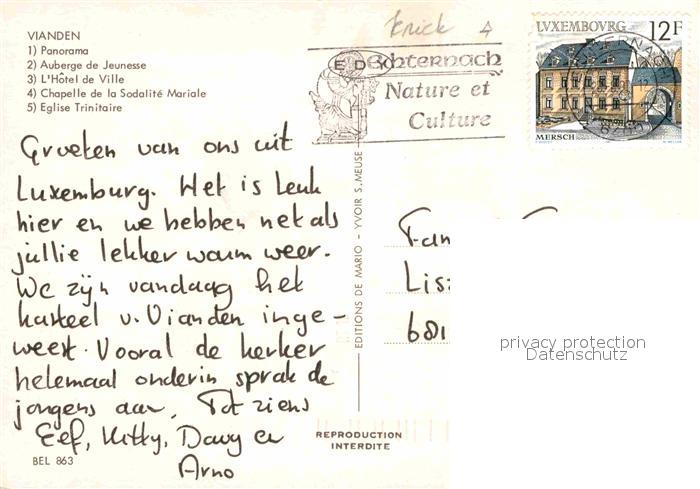 VIANDEN
1) Panorama
2) Auberge de Jeunesse
3) L'Hôtel de Ville
4) Chapelle de la Sodalité Mariale
5) Eglise Trinitaire
Knick 4
Echternach
Nature et
Culture
LUXEMBOURG 12F
MERSCH
Groeten van ons uit
Luxemburg. Het is leuk
hier en we hebben net als
jullie lekker warm weer.
We zijn vandaag het
kasteel v. Vianden inge-
weest. Vooral de kerker
helemaal onderin sprak de
jongens aan. Tot ziens
Eef, Kitty, Davy en
Arno
EDITIONS DE MARIO - YVOIR S. MEUSE
Fam
Lis
681
privacy protection
Datenschutz
REPRODUCTION
INTERDITE
BEL 863